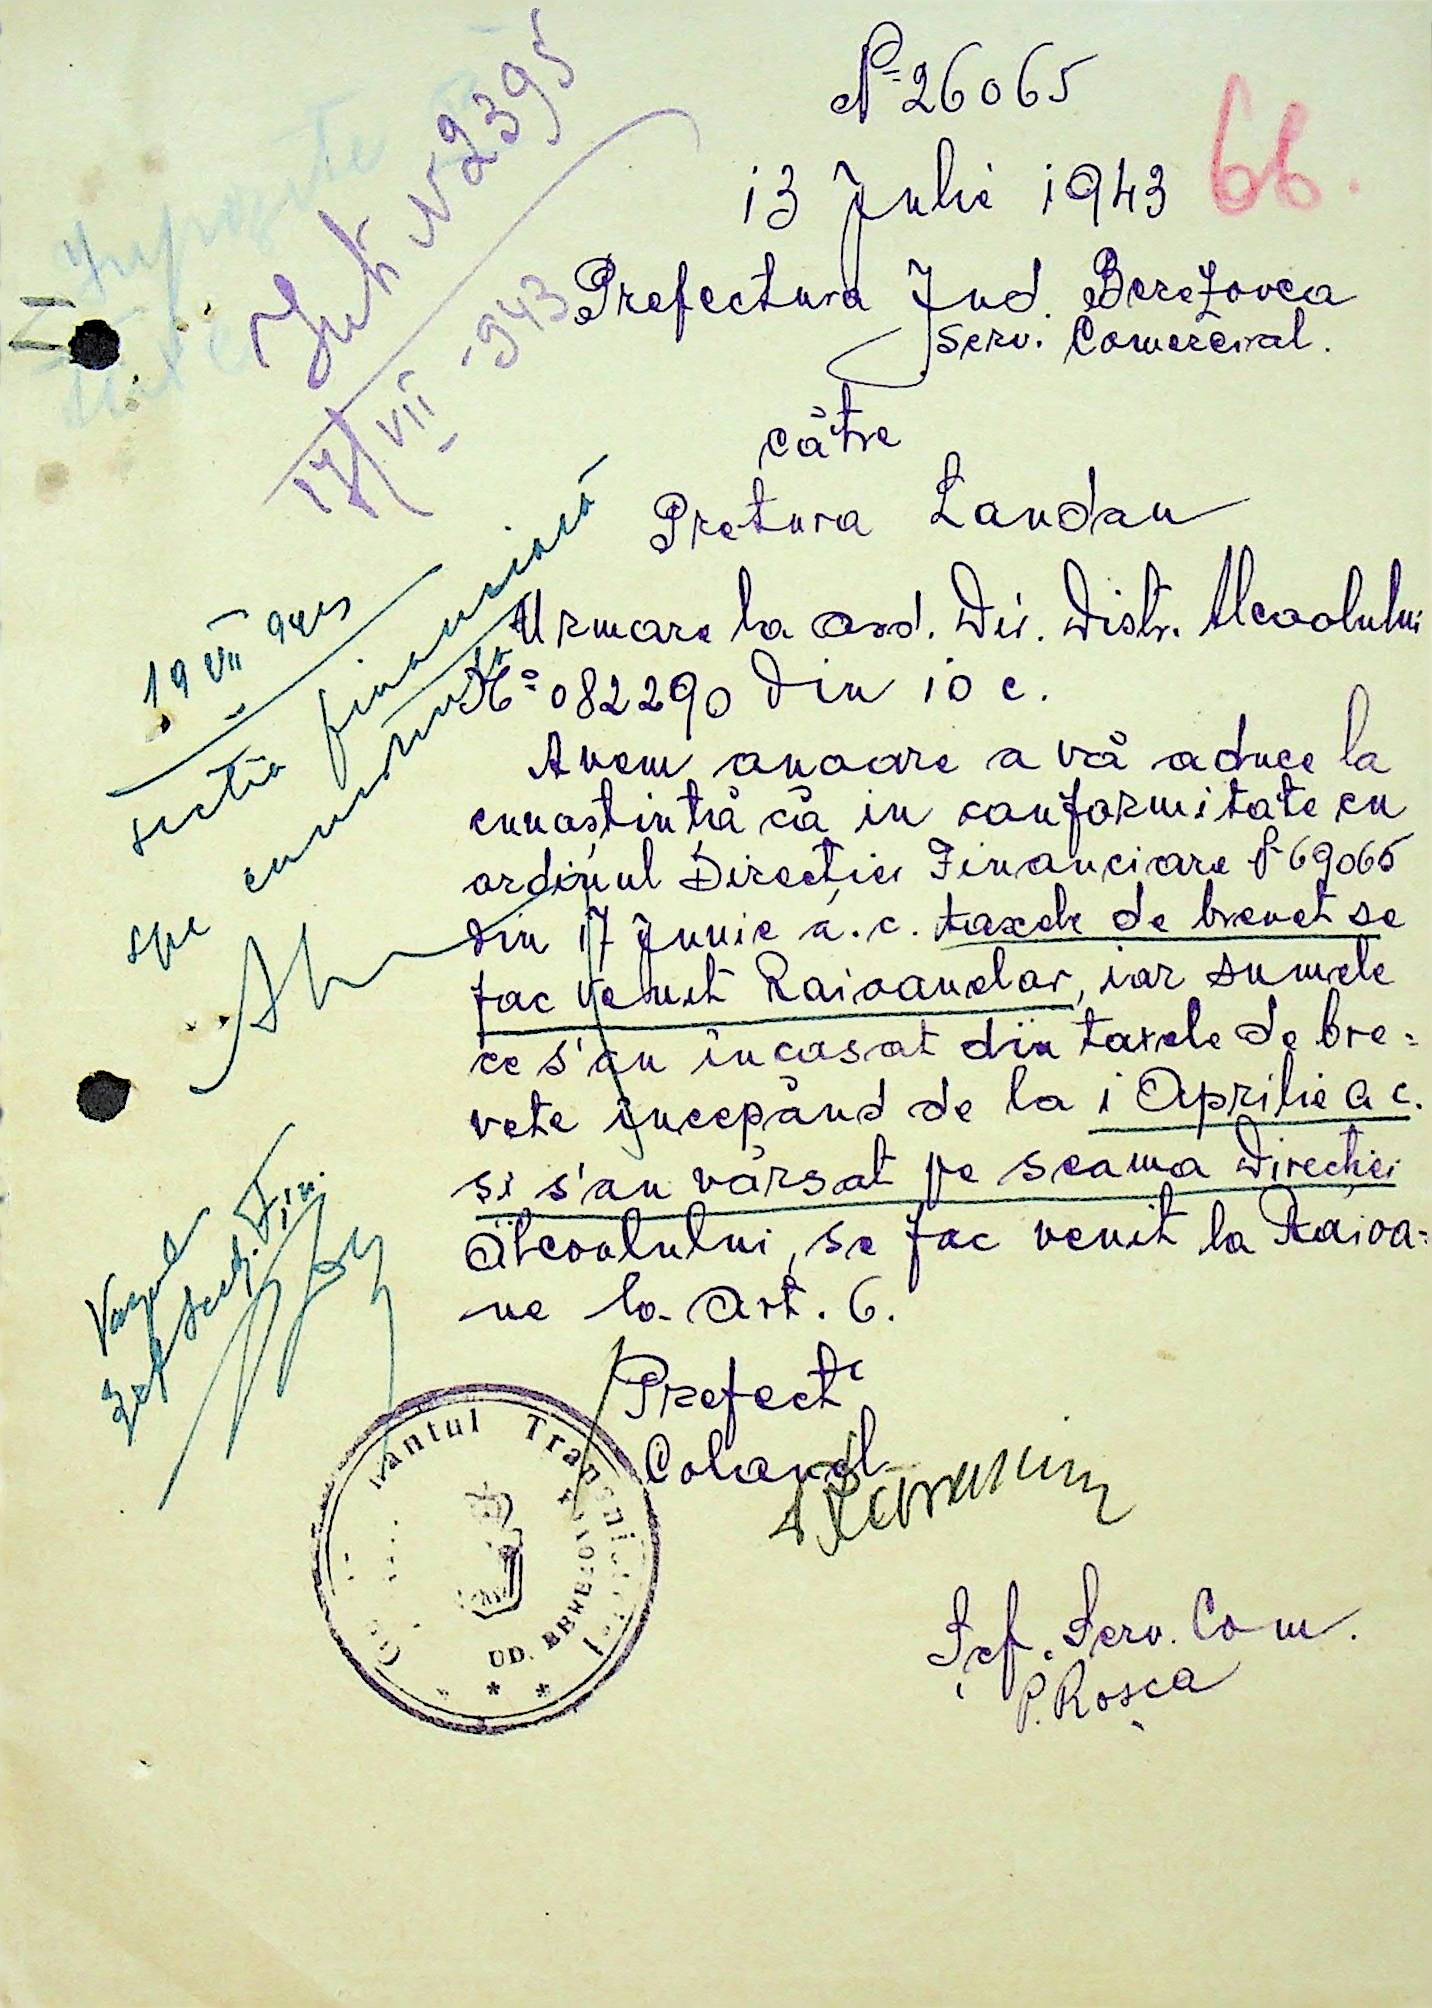 Nº 26065
13 Julie 1943
66.
Prefectura Jud. Berezovca
Serv. Comercial.
către
Pretura Landau
Urmare la ord. Dir. Distr. Alcoolului
Nº 082290 din 10 c.
Avem onoare a vă aduce la
cunoștință că in conformitate cu
ordinul Direcției Financiare Nº 69065
din 17 Junie a.c. taxele de brevet se
fac venit Raioanelor, iar sumele
ce s'au încasat din taxele de bre=
vete începând de la 1 Aprilie a c.
și s'au vărsat pe seama Direcției
Alcoolului, se fac venit la Raioa=
ne la Art. 6.
Prefect
Colonel
Șef. Serv. Com.
P. Roșca
Nº 2395
17 VII 943
19 VII 943
sectia financiară
spe conformitate
Șef Secț. Fin.
Transnistriei
JUD. BEREZOVCA